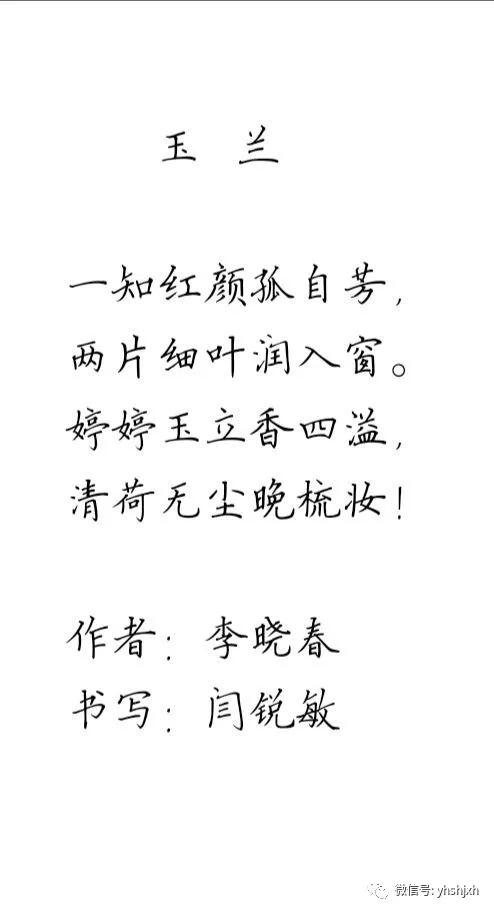 玉 兰
一知红颜孤自芳，
两片细叶润入窗。
婷婷玉立香四溢，
清荷无尘晚梳妆！
作者：李晓春
书写：闫锐敏
微信号: yhshjxh